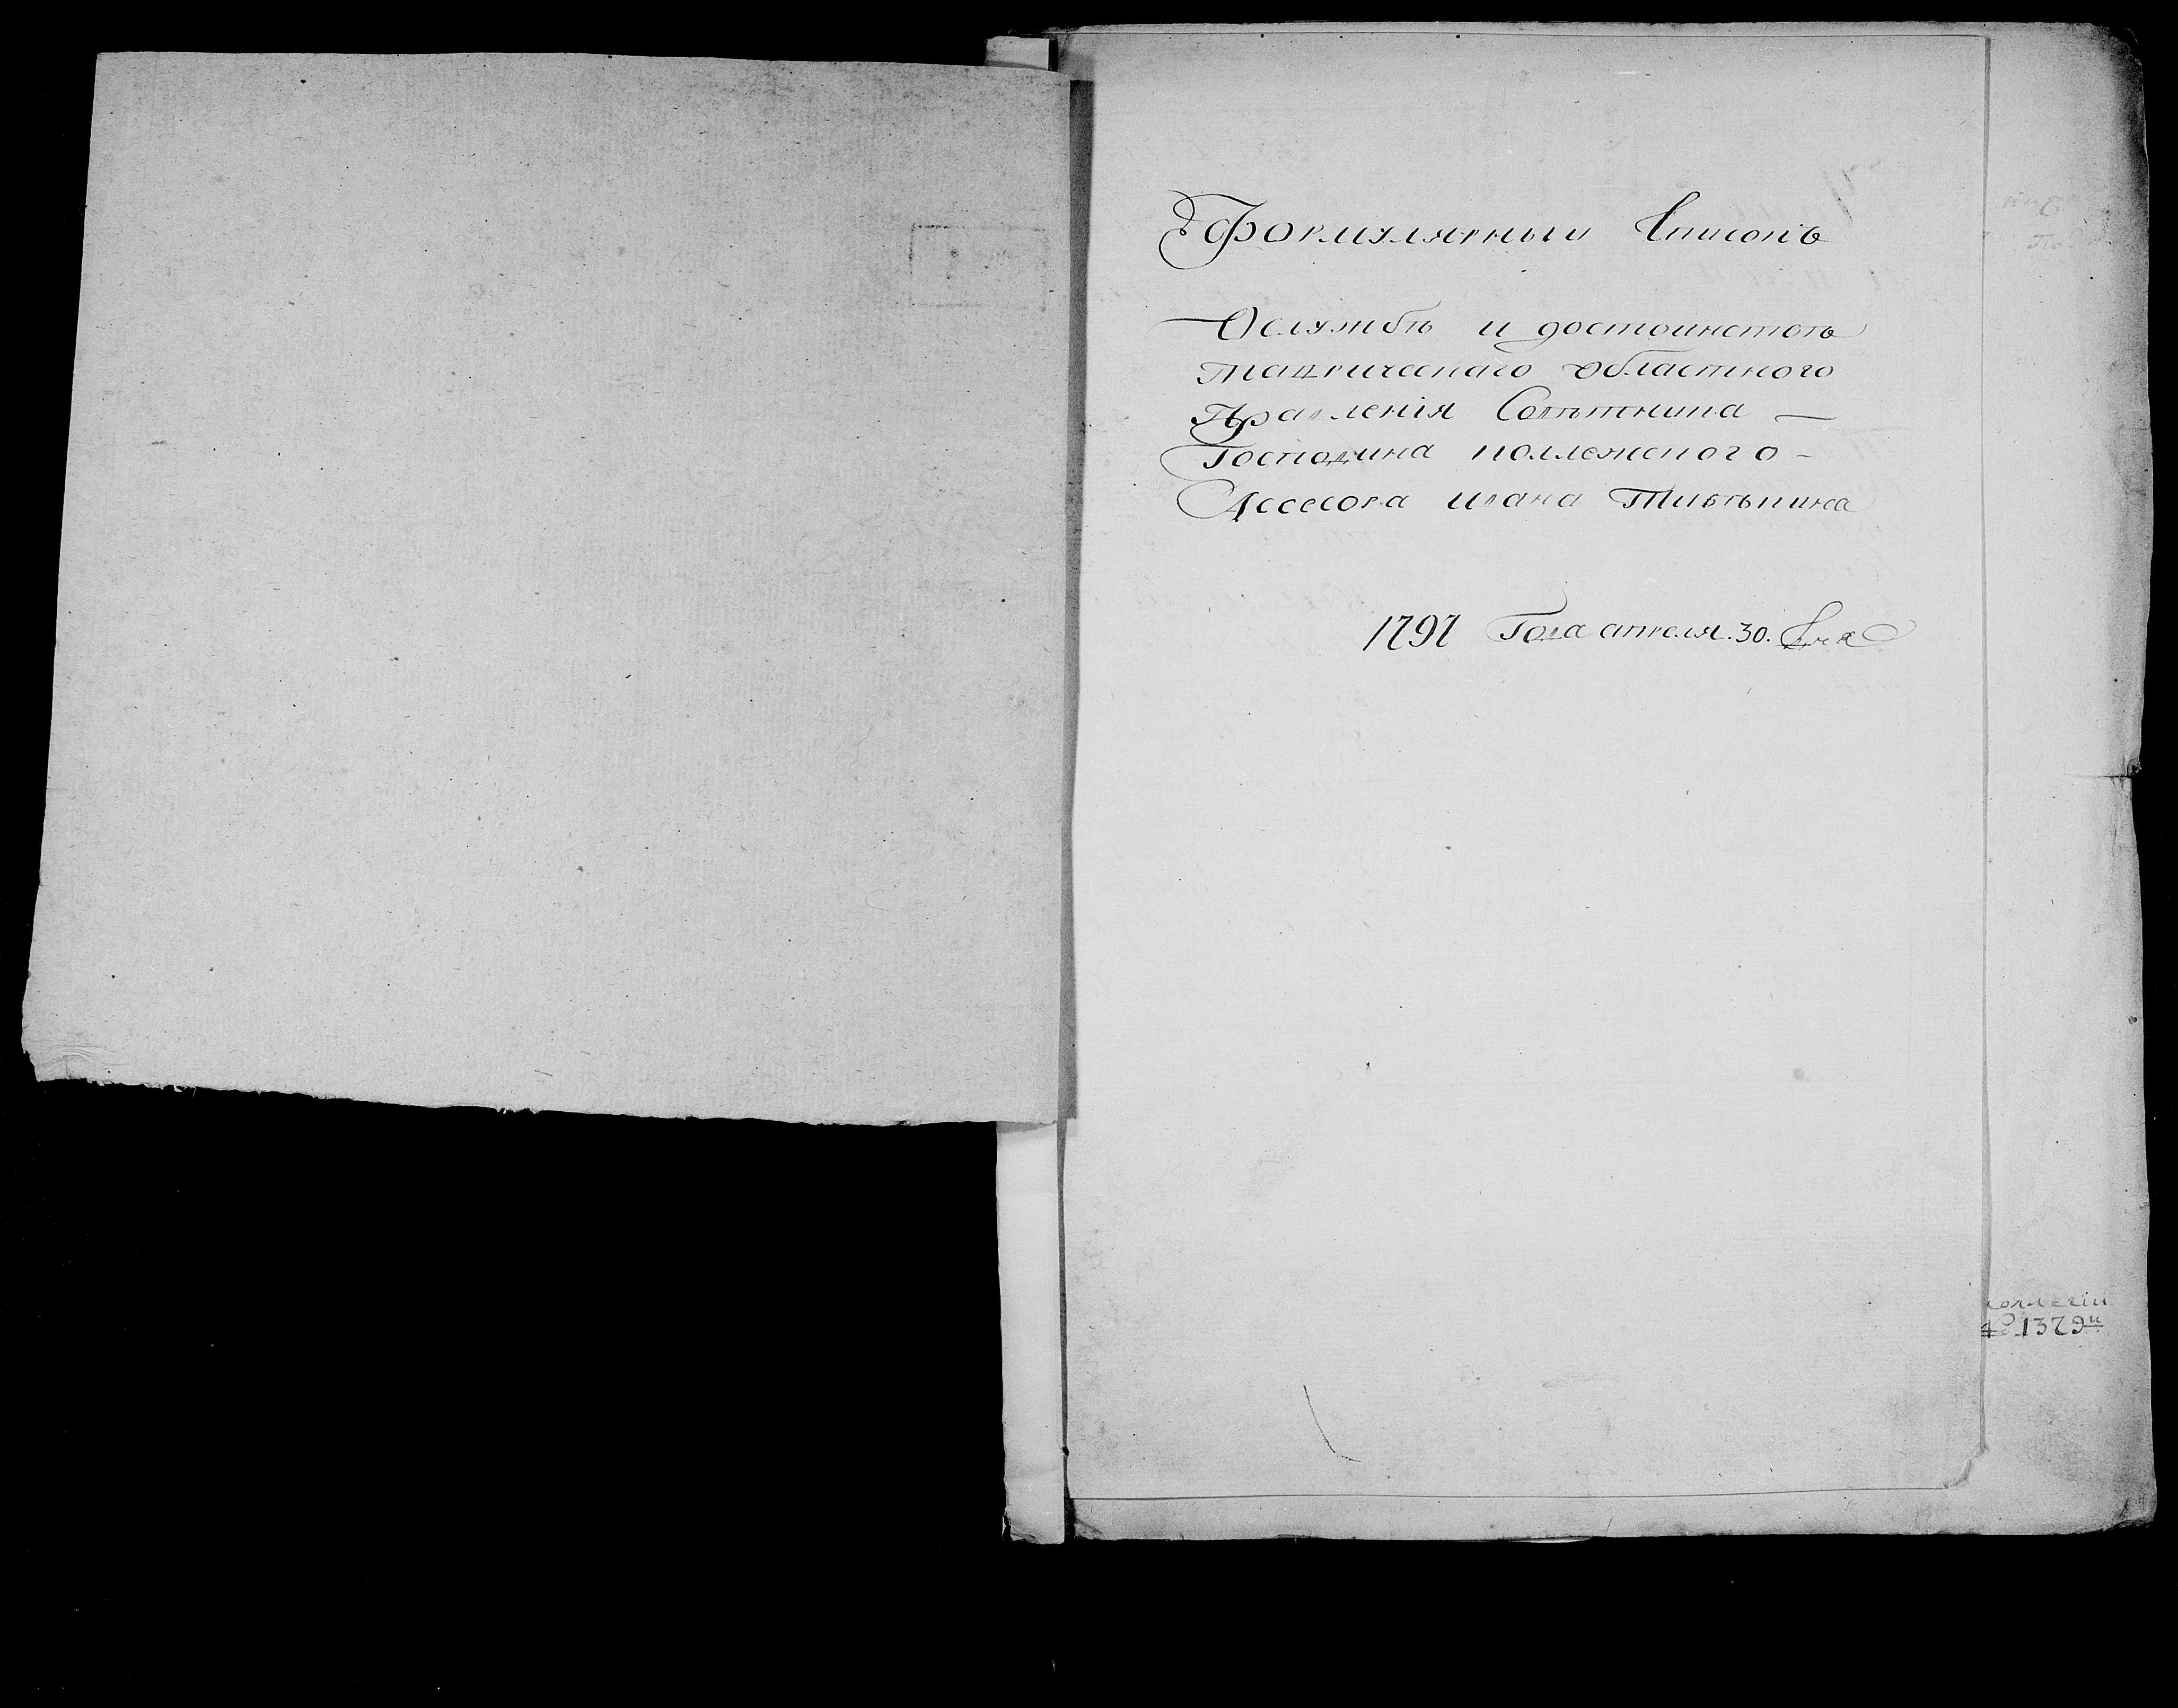 Формулярный Списокъ
Ослужбѣ и достоинствѣ
таврическаго областного
Правленія Совѣтника —
Господина коллежского -
Ассесора ивана Тибѣкина
1797 Года апреля. 30. дня
коллегіи
№ 1379й